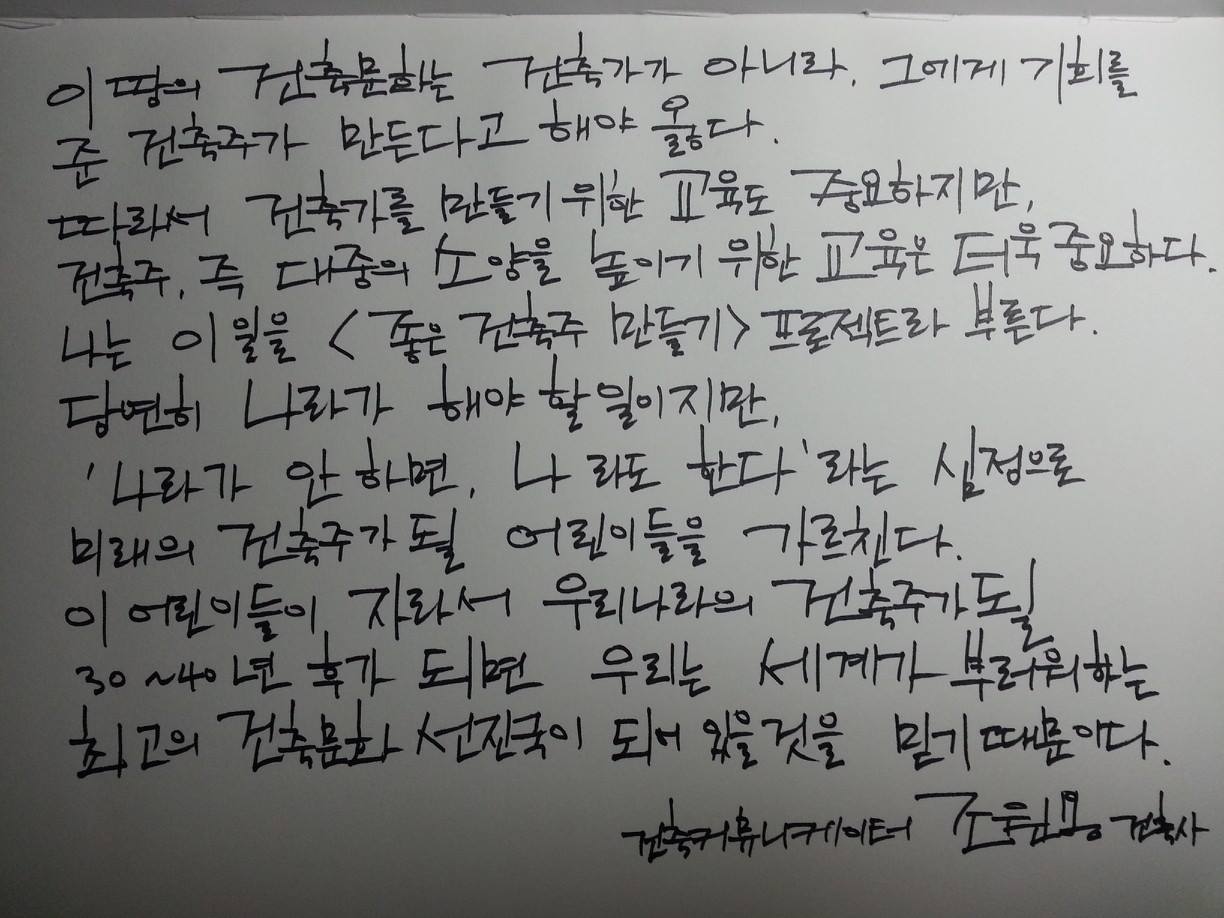 이 땅의 건축문화는 건축가가 아니라, 그에게 기회를
준 건축주가 만든다고 해야 옳다.
따라서 건축가를 만들기 위한 교육도 중요하지만,
건축주, 즉 대중의 소양을 높이기 위한 교육은 더욱 중요하다.
나는 이 일을 <좋은 건축주 만들기> 프로젝트라 부른다.
당연히 나라가 해야 할 일이지만,
'나라가 안 하면, 나 라도 한다'라는 심정으로
미래의 건축주가 될 어린이들을 가르친다.
이 어린이들이 자라서 우리나라의 건축주가 될
30~40년 후가 되면 우리는 세계가 부러워하는
최고의 건축문화 선진국이 되어 있을 것을 믿기 때문이다.
건축커뮤니케이터 조원용 건축사